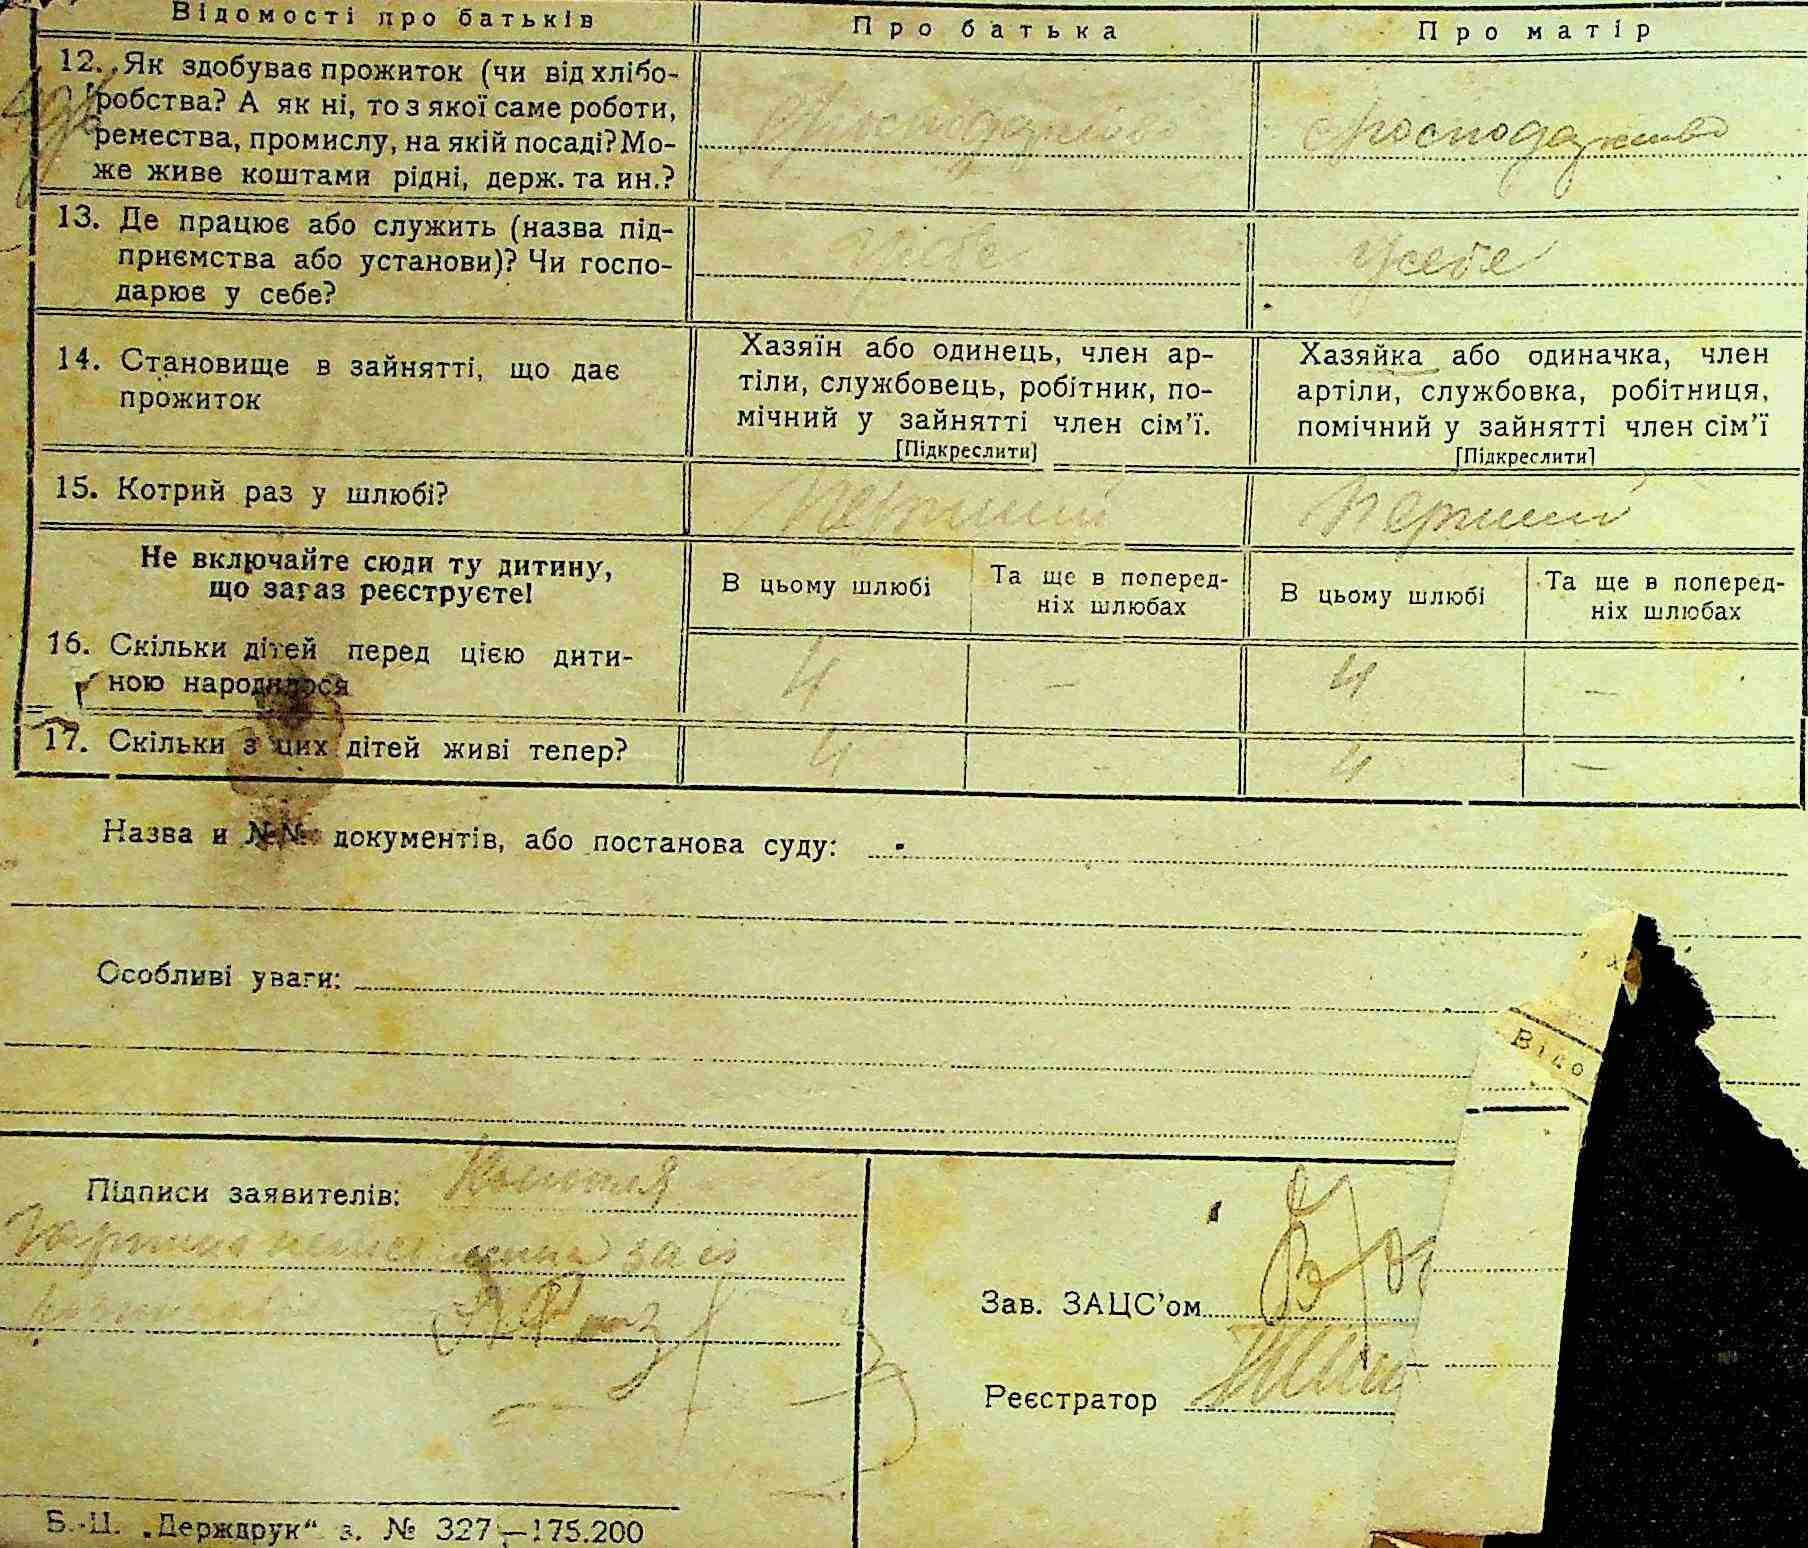 Відомості про батьків Про батька Про матір
12. Як здобуває прожиток (чи від хлібо-
робства? А як ні, то з якої саме роботи,
ремества, промислу, на якій посаді? Мо-
же живе коштами рідні, держ. та ин.?
13. Де працює або служить (назва під-
приємства або установи)? Чи госпо-
дарює у себе?
у себе у себе
14. Становище в зайнятті, що дає
прожиток
Хазяїн або одинець, член ар-
тіли, службовець, робітник, по-
мічний у зайнятті член сім'ї.
[Підкреслити]
Хазяйка або одиначка, член
артіли, службовка, робітниця,
помічний у зайнятті член сім'ї
[Підкреслити]
15. Котрий раз у шлюбі? Перший Перший
Не включайте сюди ту дитину,
що зараз реєструєте!
В цьому шлюбі
Та ще в поперед-
ніх шлюбах
В цьому шлюбі
Та ще в поперед-
ніх шлюбах
16. Скільки дітей перед цією дити-
ною народилося
4 – 4 –
17. Скільки з цих дітей живі тепер? 4 - 4 –
Назва и №№ документів, або постанова суду:
Особливі уваги:
Відо
Підписи заявителів:
за её
Зав. ЗАЦС'ом
Реєстратор
Б.-Ц. „Держдрук“ з. № 327—175.200